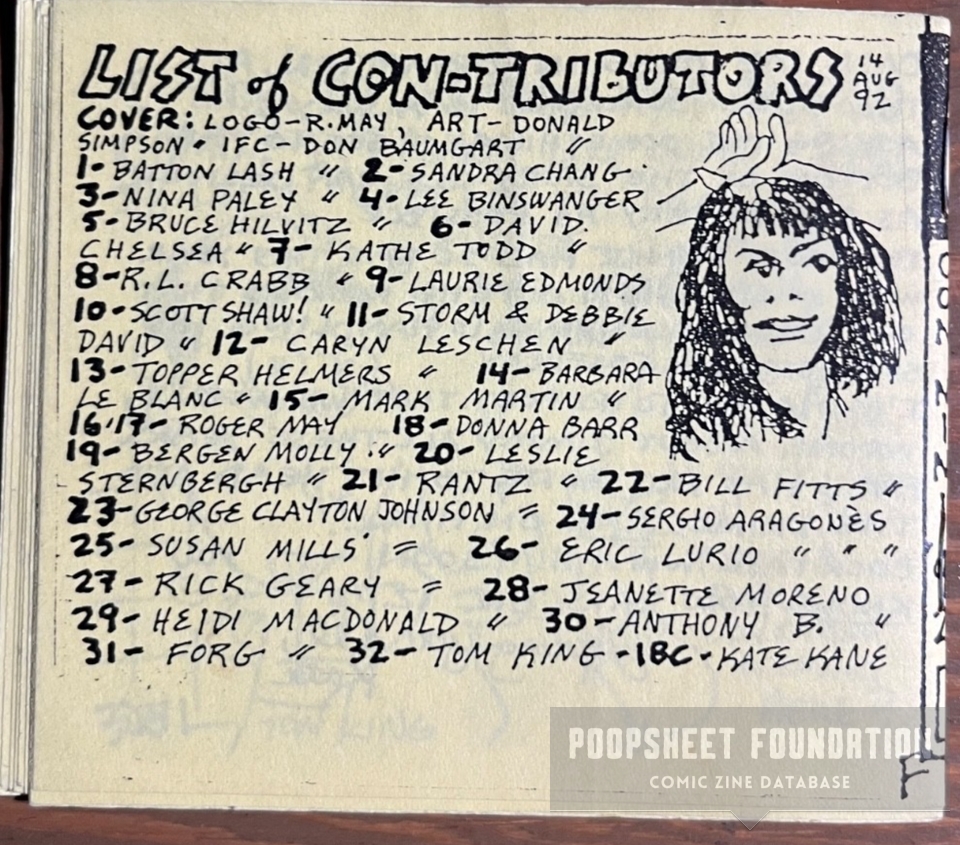 LIST of CON-TRIBUTORS 14 AUG 92
COVER: LOGO-R.MAY, ART-DONALD
SIMPSON • IFC-DON BAUMGART "
1-BATTON LASH " 2-SANDRA CHANG
3-NINA PALEY " 4-LEE BINSWANGER
5-BRUCE HILVITZ " 6-DAVID
CHELSEA " 7-KATHE TODD "
8-R.L. CRABB " 9-LAURIE EDMONDS
10-SCOTT SHAW! " 11-STORM & DEBBIE
DAVID " 12-CARYN LESCHEN "
13-TOPPER HELMERS " 14-BARBARA
LE BLANC " 15-MARK MARTIN "
16,17-ROGER MAY 18-DONNA BARR
19-BERGEN MOLLY " 20-LESLIE
STERNBERGH " 21-RANTZ " 22-BILL FITTS "
23-GEORGE CLAYTON JOHNSON = 24-SERGIO ARAGONÈS
25-SUSAN MILLS = 26-ERIC LURIO " " "
27-RICK GEARY = 28-JEANETTE MORENO
29-HEIDI MACDONALD " 30-ANTHONY B. "
31-FORG " 32-TOM KING -IBC-KATE KANE
POOPSHEET FOUNDATION
COMIC ZINE DATABASE